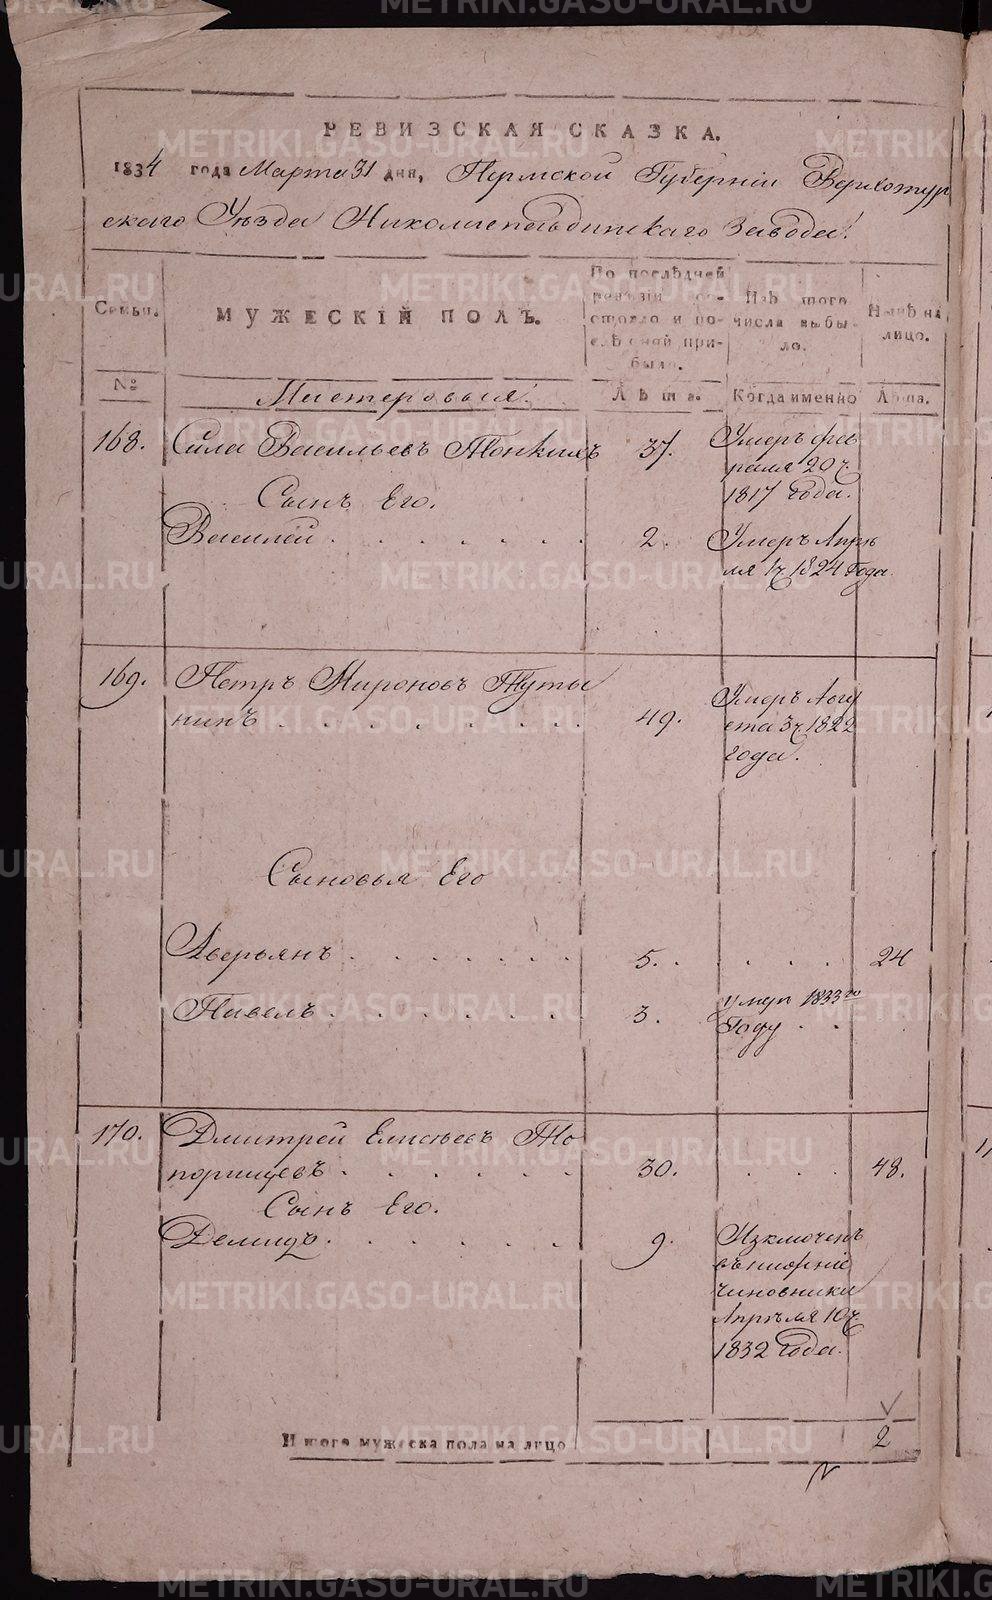 METRIKI.GASO-URAL.RU
РЕВИЗСКАЯ СКАЗКА.
1834 года Марта 31 дня, Пермской Губерніи Верхотур
скаго Уѣзда Николаепавдинскаго Завода.
Семьи.
МУЖЕСКІЙ ПОЛЪ.
По послѣдней
ревизіи со-
стояло и по-
слѣ оной при-
было.
Изъ того
числа выбы-
ло.
Нынѣ на
лицо.
№
Мастеровыя.
Лѣта.
Когда именно
Лѣта.
168. Сила Васильевъ Тонкихъ 37. Умеръ фев
раля 20ч.
1817 года.
Сынъ Его.
Василей 2. Умеръ Апрѣ
ля 1ч 1824 Года
169. Петръ Мироновъ Туты
нинъ 49. Умеръ Авгу
ста 3ч. 1822
года.
Сыновья Его
Аверьянъ 5. 24
Павелъ 3. умеръ 1833го
Году
170. Дмитрей Елисѣевъ То
порищевъ 30. 48.
Сынъ Его.
Демидъ 9. Изключенъ
чиновники
Апрѣля 10ч.
1832 года.
Итого мужеска пола на лицо 2